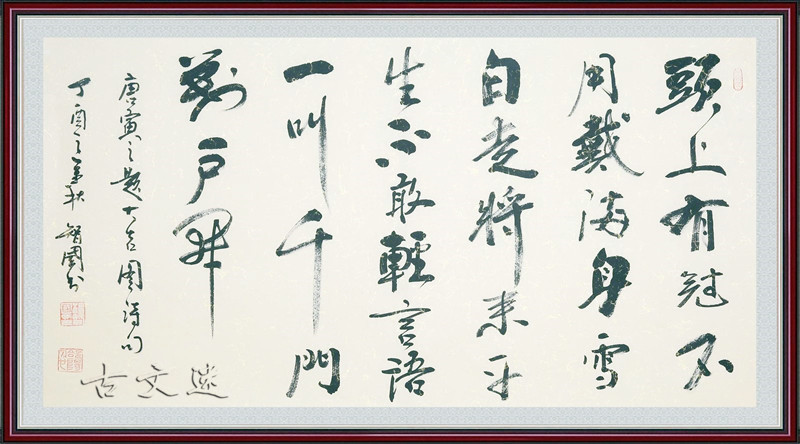 頭上有冠不
用戴滿身雪
白走將來平
生不敢輕言語
一叫千門
萬戶開
唐寅之題大吉圖詩句
丁酉之秋 智國書
古文